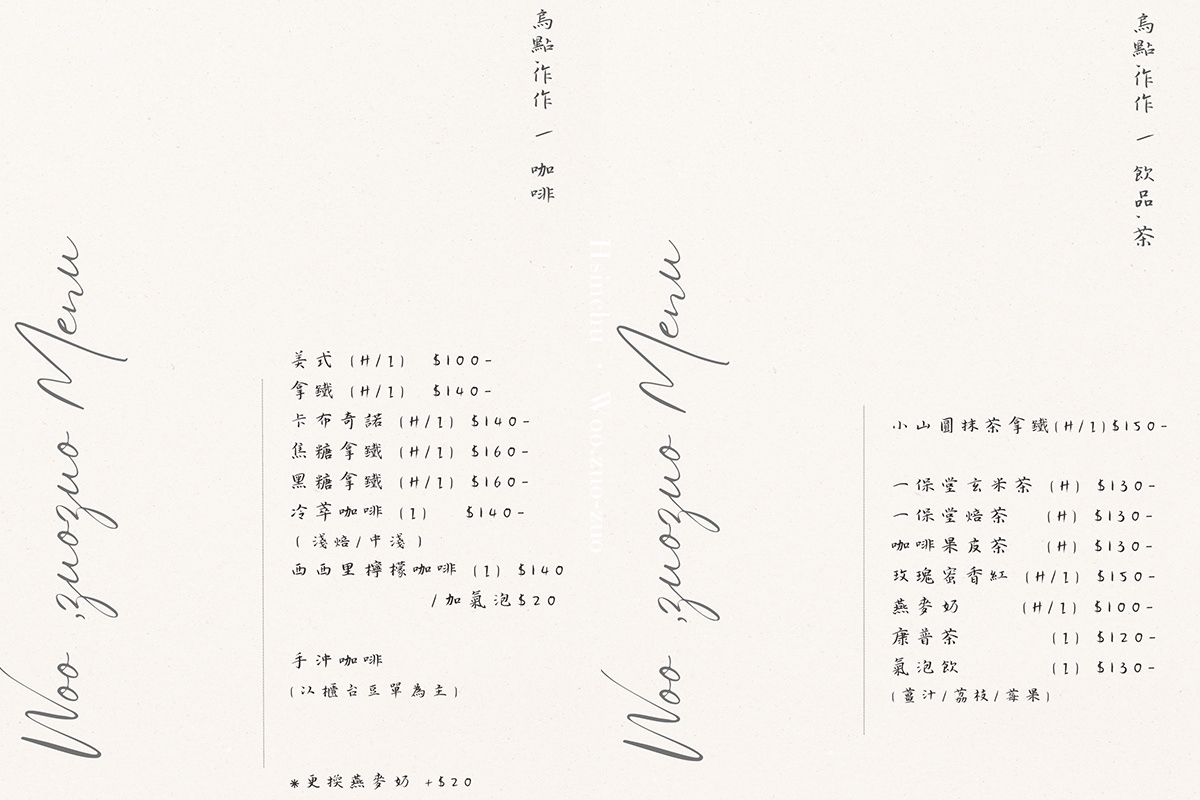 烏點作作 一 咖啡
Woo,zuozuo Menu
美式 (H/I) $100-
拿鐵 (H/I) $140-
卡布奇諾 (H/I) $140-
焦糖拿鐵 (H/I) $160-
黑糖拿鐵 (H/I) $160-
冷萃咖啡 (I) $140-
( 淺焙/中淺 )
西西里檸檬咖啡 (I) $140
/加氣泡$20
手沖咖啡
(以櫃台豆單為主)
*更換燕麥奶 +$20
Hsinchu · Woo,zuo-zuo
烏點作作 一 飲品.茶
Woo,zuozuo Menu
小山園抹茶拿鐵(H/I)$150-
一保堂玄米茶 (H) $130-
一保堂焙茶 (H) $130-
咖啡果皮茶 (H) $130-
玫瑰蜜香紅 (H/I) $150-
燕麥奶 (H/I) $100-
康普茶 (I) $120-
氣泡飲 (I) $130-
(薑汁/荔枝/莓果)